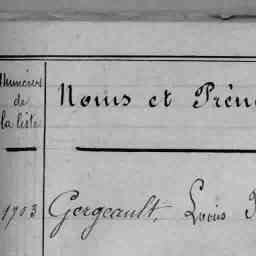 Numéros
de
la liste
Noms et Prén
1703 Gergeault, Louis